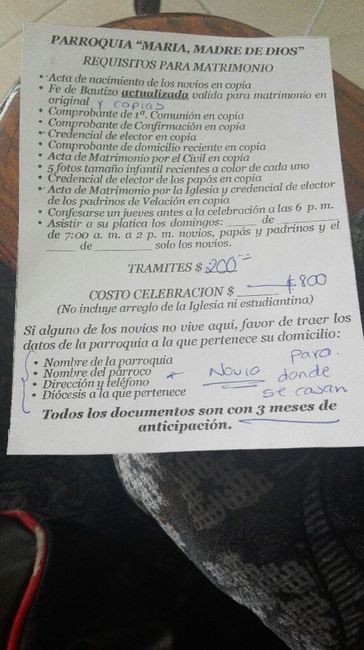 PARROQUIA "MARIA, MADRE DE DIOS"
REQUISITOS PARA MATRIMONIO
• Acta de nacimiento de los novios en copia
• Fe de Bautizo actualizada valida para matrimonio en
original y copias
• Comprobante de 1ª. Comunión en copia
• Comprobante de Confirmación en copia
• Credencial de elector en copia
• Comprobante de domicilio reciente en copia
• Acta de Matrimonio por el Civil en copia
• 5 fotos tamaño infantil recientes a color de cada uno
• Credencial de elector de los papás en copia
• Acta de Matrimonio por la Iglesia y credencial de elector
de los padrinos de Velación en copia
• Confesarse un jueves antes a la celebración a las 6 p. m.
• Asistir a su platica los domingos: ______ de ______
de 7:00 a. m. a 2 p. m. novios, papás y padrinos y el
____ de ________ solo los novios.
TRAMITES $ 200
COSTO CELEBRACION $ ______ $ 800
(No incluye arreglo de la Iglesia ni estudiantina)
Si alguno de los novios no vive aquí, favor de traer los
datos de la parroquia a la que pertenece su domicilio:
• Nombre de la parroquia
• Nombre del párroco
• Dirección y teléfono
• Diócesis a la que pertenece
Novio
Para
donde
se casan
Todos los documentos son con 3 meses de
anticipación.